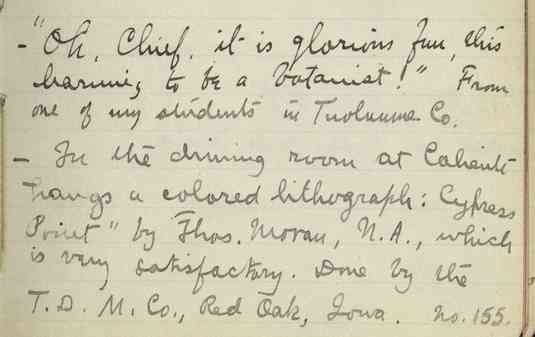 - "Oh, Chief, it is glorious fun, this
learning to be a botanist!" From
one of my students in Tuolumne Co.
- In the dining room at Caliente
hangs a colored lithograph: Cypress
Point" by Thos. Moran, N.A., which
is very satisfactory. Done by the
T. D. M. Co., Red Oak, Iowa. No. 155.